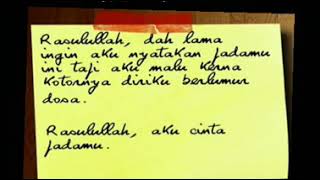 Rasulullah, dah lama
ingin aku nyatakan padamu
ini tapi aku malu kerna
kotornya diriku berlumur
dosa.
Rasulullah, aku cinta
padamu.